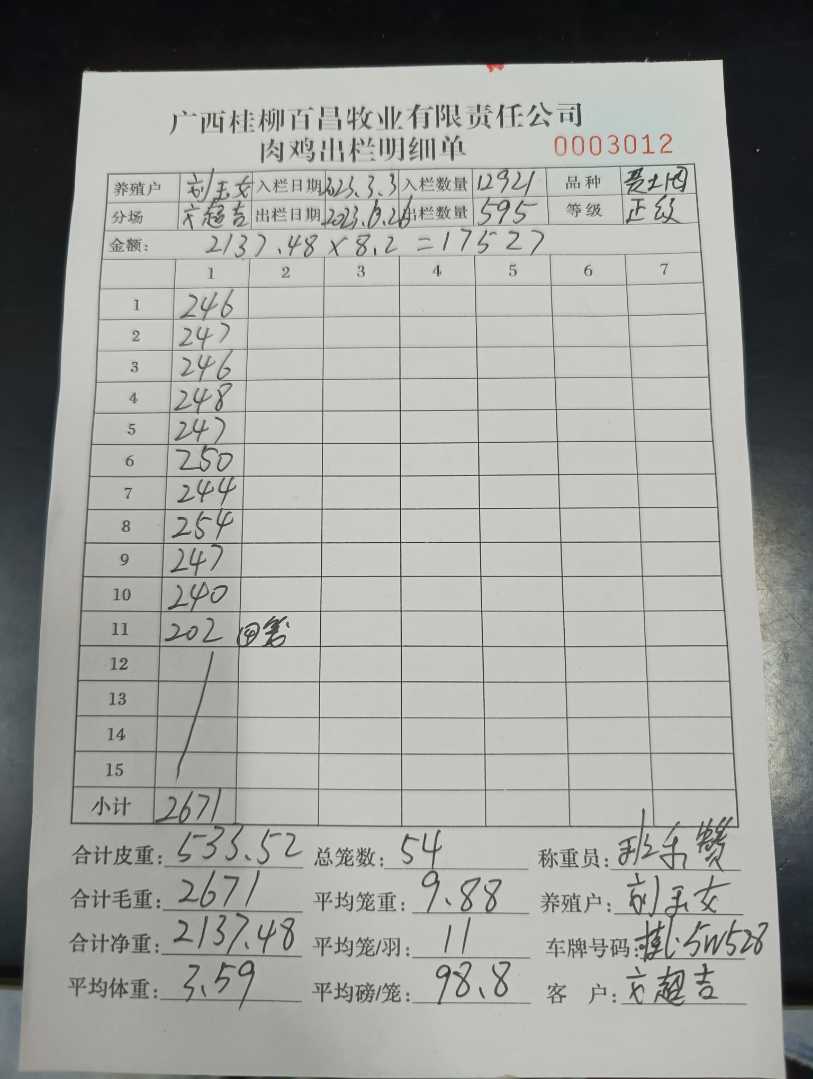 广西桂柳百昌牧业有限责任公司
肉鸡出栏明细单 0003012
养殖户 刘玉女 入栏日期 2023.3.3 入栏数量 12921 品种
分场 方超吉 出栏日期 2023.6.26 出栏数量 595 等级 正级
金额: 2137.48 × 8.2 = 17527
1 2 3 4 5 6 7
1 246
2 247
3 246
4 248
5 247
6 250
7 244
8 254
9 247
10 240
11 202 四笼
12
13
14
15
小计 2671
合计皮重: 533.52 总笼数: 54 称重员: 班乐赞
合计毛重: 2671 平均笼重: 9.88 养殖户: 刘玉女
合计净重: 2137.48 平均笼/羽: 11 车牌号码: 桂L·5W528
平均体重: 3.59 平均磅/笼: 98.8 客户: 方超吉